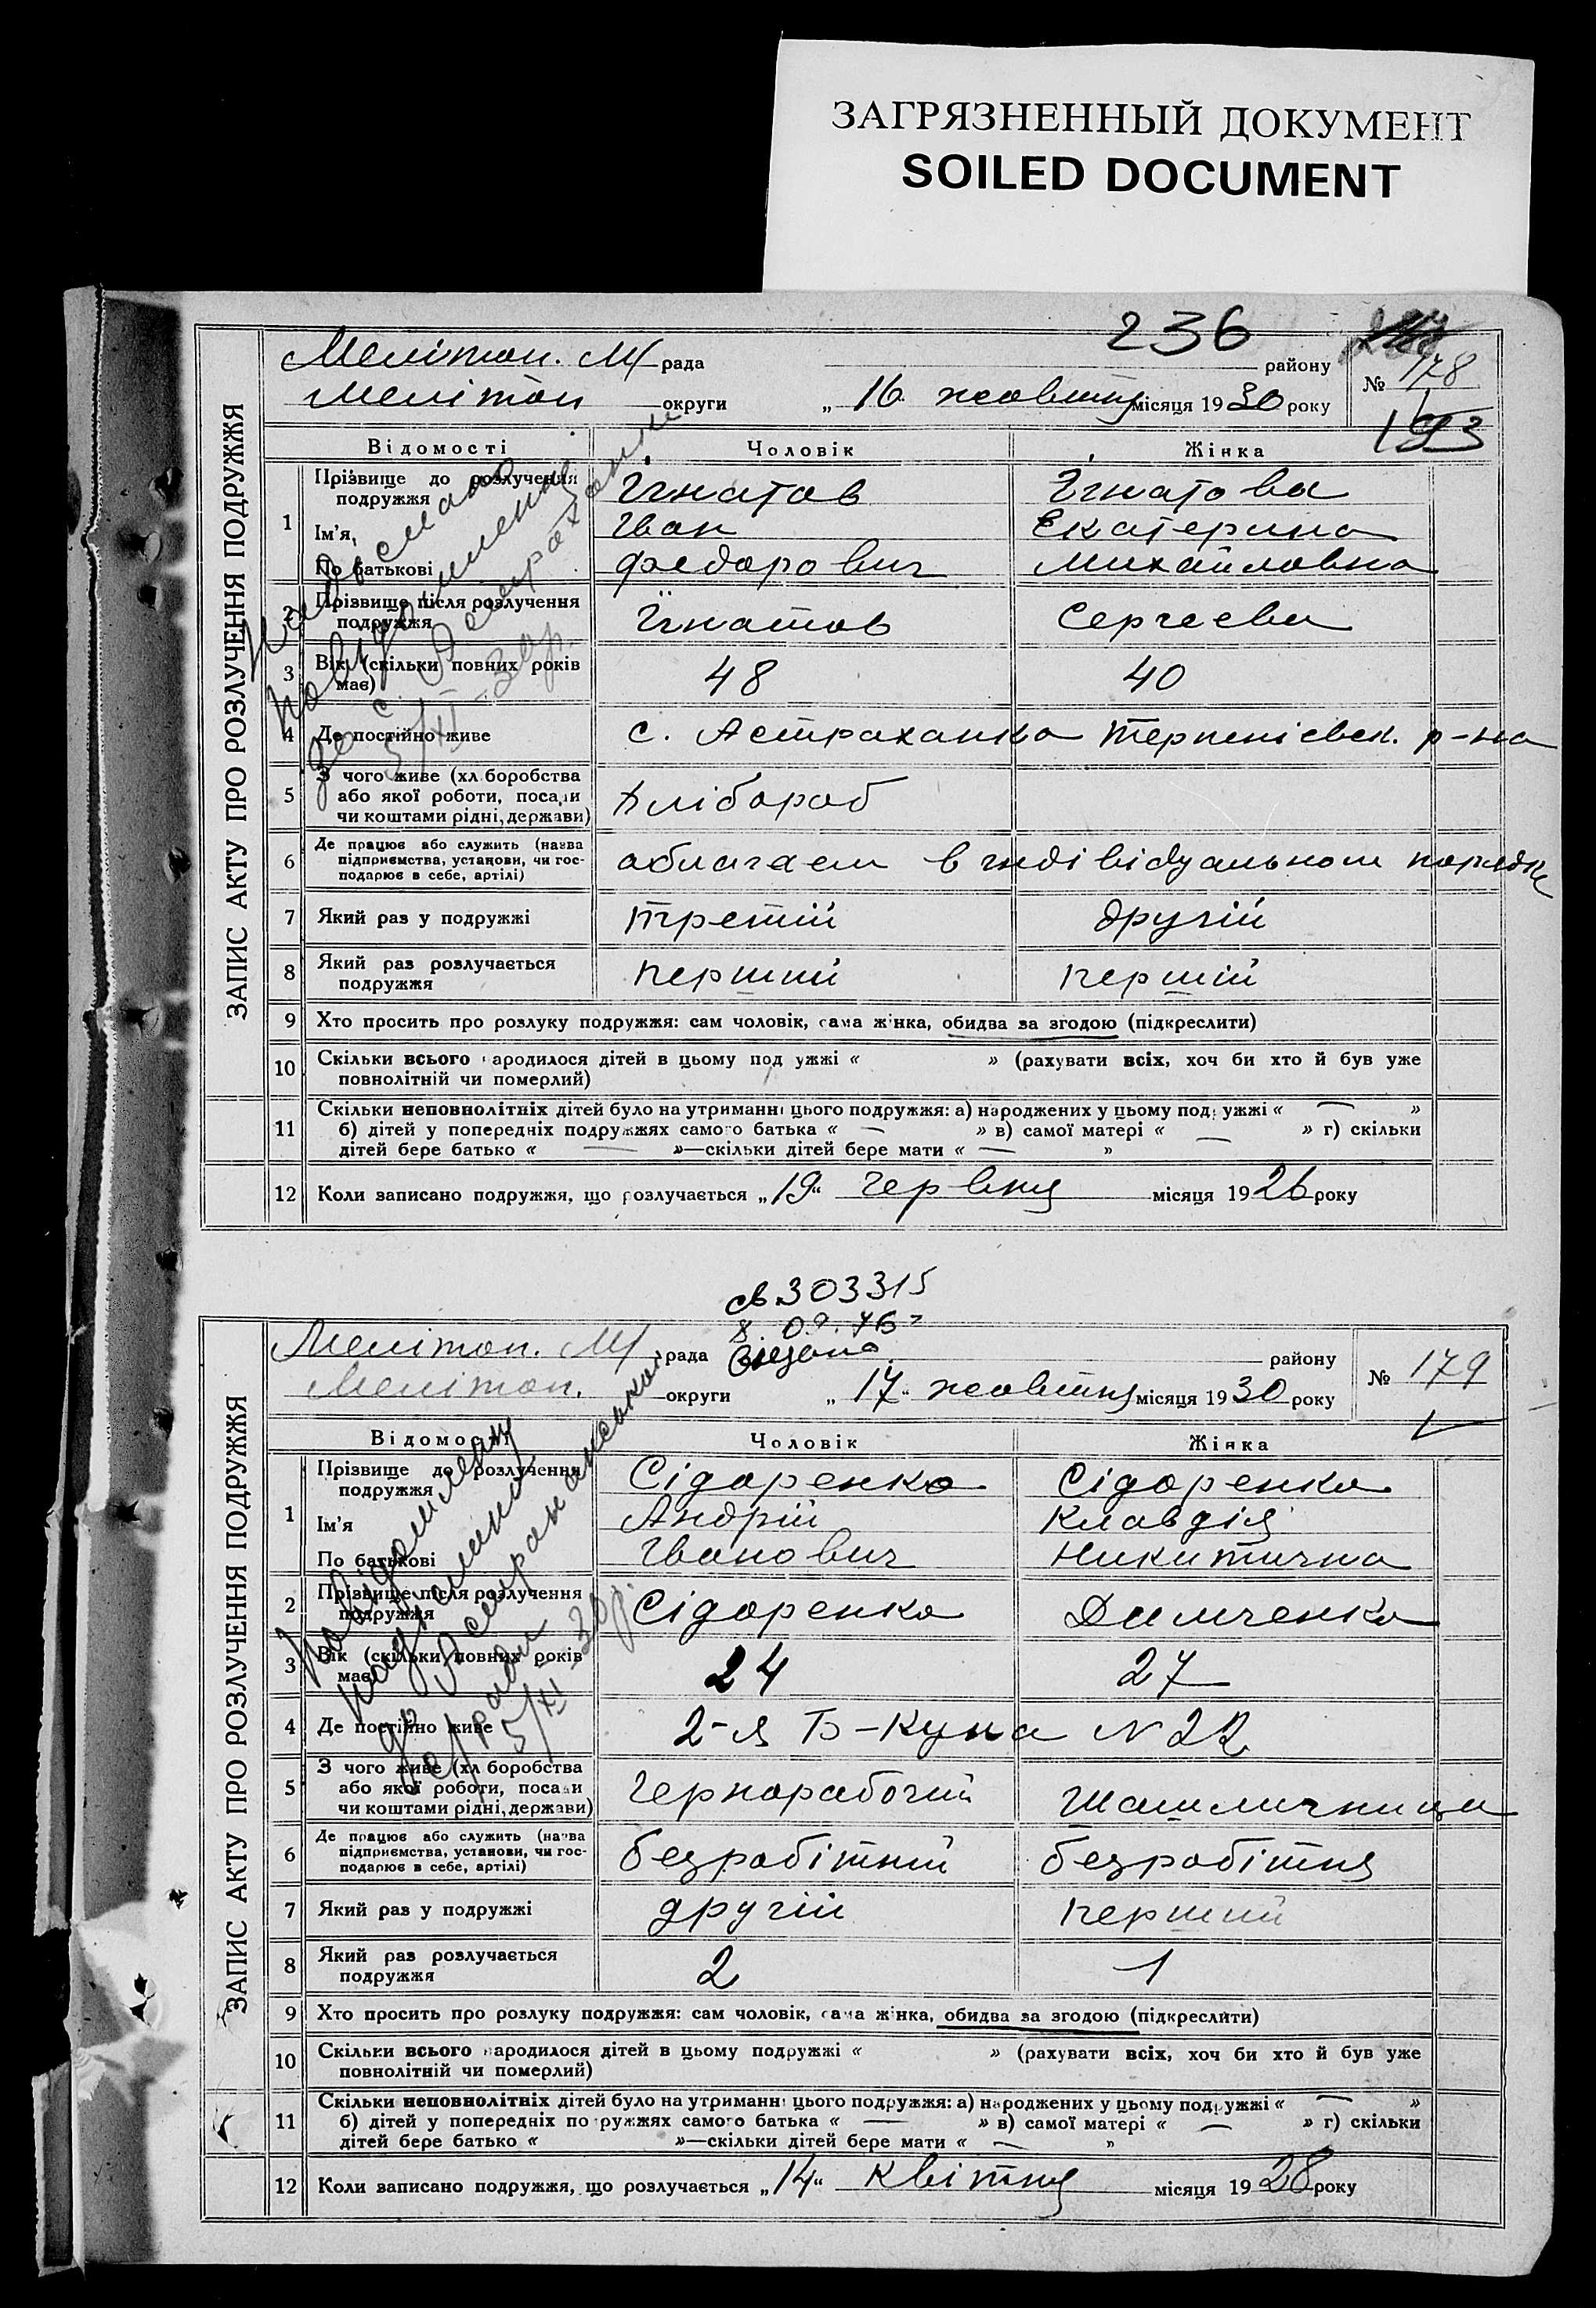 ЗАГРЯЗНЕННЫЙ ДОКУМЕНТ
SOILED DOCUMENT
236
ЗАПИС АКТУ ПРО РОЗЛУЧЕННЯ ПОДРУЖЖЯ
Мелітоп. М рада району № 178
Мелітоп округи „ 16 жовтня місяця 1930 року
193
Відомості Чоловік Жінка
1 Прізвище до розлучення подружжя Ігнатов Ігнатова
Ім'я, Іван Екатерина
По батькові Федорович Михайловна
2 Прізвище після розлучення подружжя Ігнатов Сергеева
3 Вік (скільки повних років має) 48 40
4 Де постійно живе с. Астраханка Терпенієвск. р-на
5 З чого живе (хл.боробства
або якої роботи, посади
чи коштами рідні, держави) Хлібороб
6 Де працює або служить (назва
підприємства, установи, чи гос-
подарює в себе, артілі) облагаем в индівідуальном порядке
7 Який раз у подружжі третій другій
8 Який раз розлучається подружжя перший першій
9 Хто просить про розлуку подружжя: сам чоловік, сама жінка, обидва за згодою (підкреслити)
10 Скільки всього народилося дітей в цьому подружжі « » (рахувати всіх, хоч би хто й був уже
повнолітній чи померлий)
11 Скільки неповнолітніх дітей було на утриманні цього подружжя: а) народжених у цьому подружжі « — »
б) дітей у попередніх подружжях самого батька « — » в) самої матері « — » г) скільки
дітей бере батько « — »—скільки дітей бере мати « — »
12 Коли записано подружжя, що розлучається „19“ червня місяця 1926 року
Надіслано
повідомлення
до с. Астраханки
5/XI-30р.
св 303315
ЗАПИС АКТУ ПРО РОЗЛУЧЕННЯ ПОДРУЖЖЯ
Мелітоп. М рада району № 179
Мелітоп. округи „ 17 “ жовтня місяця 1930 року
Відомості Чоловік Жінка
1 Прізвище до розлучення подружжя Сідоренко Сідоренко
Ім'я Андрій Клавдія
По батькові Іванович Никитична
2 Прізвище після розлучення подружжя Сідоренко Димченко
3 Вік (скільки повних років має) 24 27
4 Де постійно живе 2-я Б-Куна N 22
5 З чого живе (хл боробства
або якої роботи, посади
чи коштами рідні, держави) Чернорабочий
6 Де працює або служить (назва
підприємства, установи, чи гос-
подарює в себе, артілі) безробітний безробітня
7 Який раз у подружжі другій перший
8 Який раз розлучається подружжя 2 1
9 Хто просить про розлуку подружжя: сам чоловік, сама жінка, обидва за згодою (підкреслити)
10 Скільки всього народилося дітей в цьому подружжі « » (рахувати всіх, хоч би хто й був уже
повнолітній чи померлий)
11 Скільки неповнолітніх дітей було на утриманні цього подружжя: а) народжених у цьому подружжі « — »
б) дітей у попередніх подружжях самого батька « — » в) самої матері « — » г) скільки
дітей бере батько « »—скільки дітей бере мати « — »
12 Коли записано подружжя, що розлучається „14“ квітня місяця 1928 року
Повідомлення
надіслано
до Астраханської
с/ради
5/XI-30р.